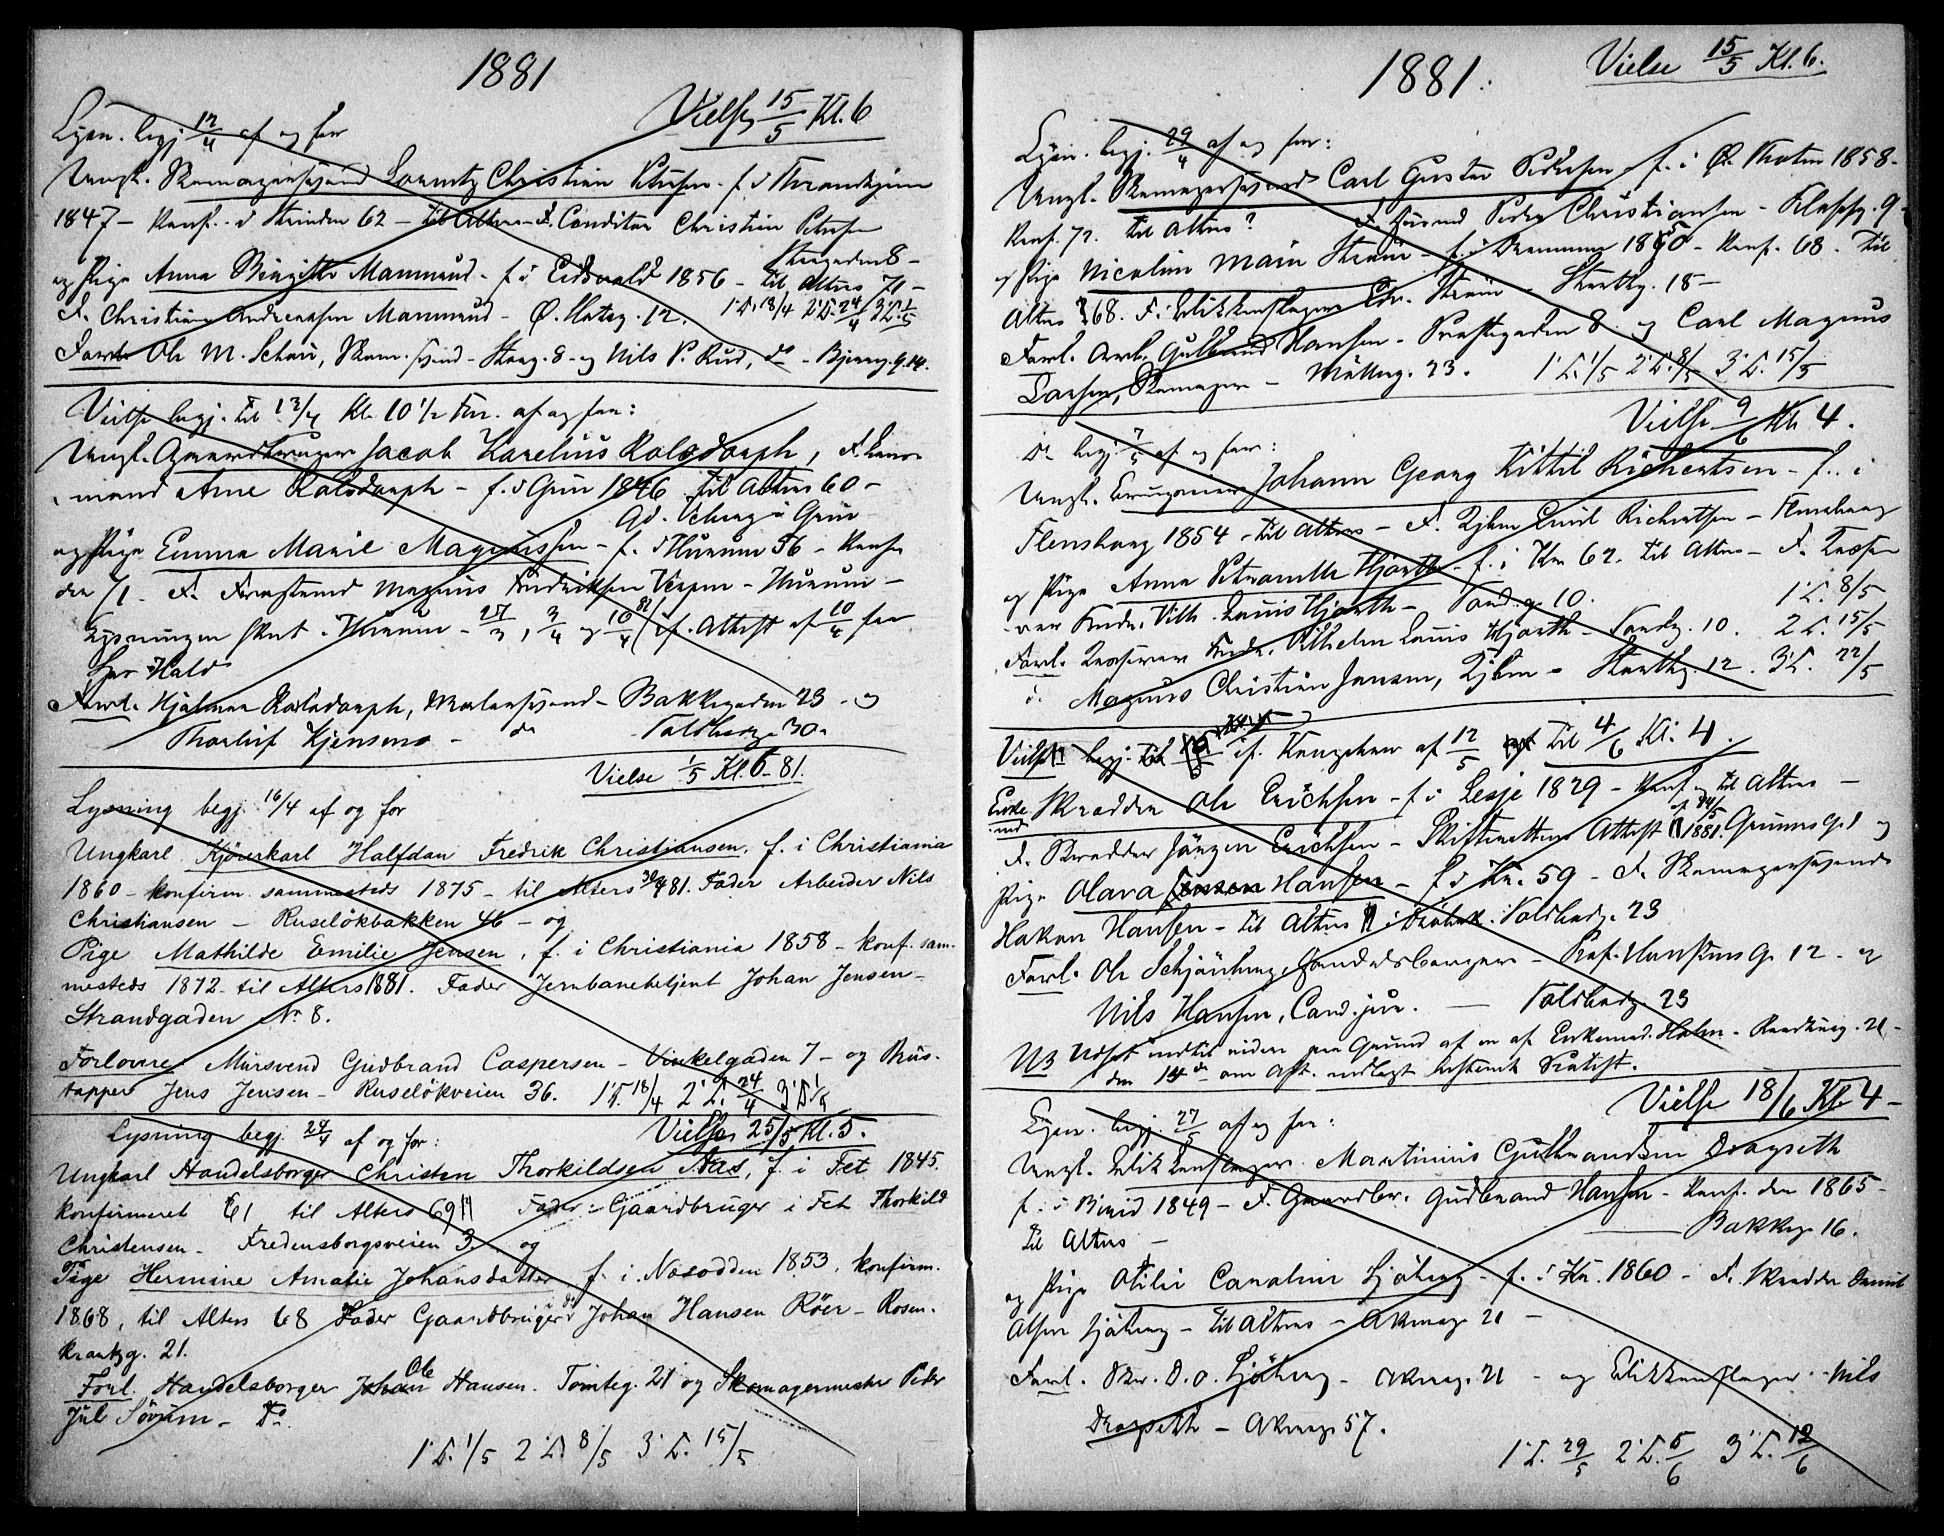 1881
Vielse 15/5 Kl. 6
Lysn. begj. 12/4 af og for
Ungk. Skomagersvend Lorentz Christian Petersen - f. i Throndhjem
1847 - Konf. i Strinden 62 - til Alters - F. Conditor Christian Petersen
Storgaden 8 -
og Pige Anna Birgitte Mammud - f. i Eidsvold 1856 - til Alters 71 -
F. Christian Andreassen Mammud - Ø. Hatsg. 12. 1' L. 18/4 2' L. 24/4 3' L. 1/5
Forl. Ole M. Schou, Skom. svend - Storg. 8 - og Nils P. Rud, do - Bjerreg. 9.
Vielse begj. til 13/4 Kl. 10 1/2 Fm. af og for:
Ungk. Gaardbruger Jacob Karelius Rolsdorph, F. Lens-
mand Arne Rolsdorph - f. i Grue 1846 til Alters 60 -
Gd. Veberg i Grue
og Pige Emma Marie Magnussen - f. i Hurum 56 - Konf.
der 71 - F. Forstmand Magnus Fredriksen Vespen - Hurum -
Lysningen skeet i Hurum - 27/3, 3/4 og 10/4 81 if. Attest af 10/4 fra
Hr. Hald
Forl. Hjalmar Rolsdorph, Malersvend - Bakkegaden 23 - og
Thorleif Kjensmo - do Voldberg. 30.
Vielse 1/5 Kl. 6 - 81.
Lysning begj. 16/4 af og for
Ungkarl Kjørerkarl Halfdan Fredrik Christiansen, f. i Christiania
1860 - konfirm. sammesteds 1875 - til Alters 3/4 81. Fader Arbeider Nils
Christiansen - Ruseløkbakken 46 - og
Pige Mathilde Emilie Jensen, f. i Christiania 1858 - konf. sam-
mesteds 1872 - til Alters 1881. Fader Jernbanebetjent Johan Jensen -
Strandgaden No 8.
Forlovere Mursvend Gudbrand Caspersen - Vinkelgaden 7 - og Øls-
tapper Jens Jensen - Ruseløkveien 36. 1' L. 18/4 2' L. 24/4 3' L. 1/5
Lysning begj. 24/4 af og for: Vielse 25/5 Kl. 5.
Ungkarl Handelsborger Christen Thorkildsen Aas, f. i Fet 1845.
konfirmeret 61 til Alters 69 Fader: Gaardbruger i Fet Thorkild
Christensen - Fredensborgveien 3. og
Pige Hermine Amalie Johansdatter f. i Nesodden 1853, konfirm.
1868, til Alters 68 Fader Gaardbruger Johan Hansen Røer - Rosen-
krantzg. 21.
Forl. Handelsborger Johan Ole Hansen. Tomteg. 21 og Skomagermester Peder
Jul Søvum - Do.
1' L. 1/5 2' L. 8/5 3' L. 15/5
1881. Vielse 15/5 Kl. 6.
Lysn. begj. 29/4 af og for:
Ungk. Skomagersvend Carl Gustav Pedersen - f. i Ø. Thoten 1858.
Konf. 72. til Alters? F. Huusmd Peder Christiansen - Klappg. 9 -
og Pige Nicoline Marie Strøm - f. i Drammen 1850 - Konf. 68. til
Alters 68. F. Blikkenslager Chr. Strøm - Storthg. 18 -
Forl. Arb. Gulbrand Hansen - Præstegaden 8. og Carl Magnus
Larsen, Skomager - Møllerg. 23. 1' L. 1/5 2' L. 8/5 3' L. 15/5
Vielse 9/6 Kl. 4.
Do begj. 7/5 af og for:
Ungk. Johann Georg Kittil Richertsen - f. i
Flensborg 1854 - til Alters - F. Kjbm Emil Richertsen - Flensborg
og Pige Anna Petronelle Hjorth - f. i Kra 62. til Alters - F. Kasse-
rer Fredr. Vilh. Louis Hjorth - Vand.g. 10. 1' L. 8/5
Forl. Kasserer Fredr. Vilhelm Louis Hjorth - Vandg. 10. 2 L. 15/5
i Magnus Christian Jensen, Kjbm - Storthg. 12. 3' L. 22/5
Vielse begj. til if. Kongebrev af 12/5 til 4/6 Kl. 4.
Enke-
md Skrædder Ole Erichsen - f. i Lesje 1829 - Konf. og til Alters -
F. Skrædder Jørgen Erichsen - Skifterettens Attest af 24/5 1881. Grünersg. 1 og
Pige Olava Jensen Hansen - f. i Kra. 59 - F. Skomagersvend
Hakon Hansen - til Alters i Drøbak: Voldberg. 23
Forl. Ole Schjønberg Handelsborger - Prof. Hanstensg. 12 - og
Nils Hansen, Cand. jur. - Voldberg. 23
NB Udsat indtil videre paa Grund af en af Enkemd. Holm - Raadhusg. 21 -
den 14de om Aft. indlagt historisk Protest.
Vielse 18/6 Kl. 4 -
Lysn. begj. 27/5 af og for:
Ungk. Blikkenslager Martinius Gulbrandsen Dragseth
f. i Birid 1849 - F. Gaardbr. Gudbrand Hansen - Konf. der 1865 -
til Alters - Bakkeg. 16.
og Pige Otilie Caroline Sjøberg - f. i Kra. 1860 - F. Skrædder Daniel
Olsen Sjøberg - til Alters - Akersg. 21 -
Forl. Skr. D. O. Sjøberg - Akersg. 21 - og Blikkenslager Nils
Dragseth - Akersg. 57.
1' L. 29/5 2' L. 5/6 3' L. 12/6